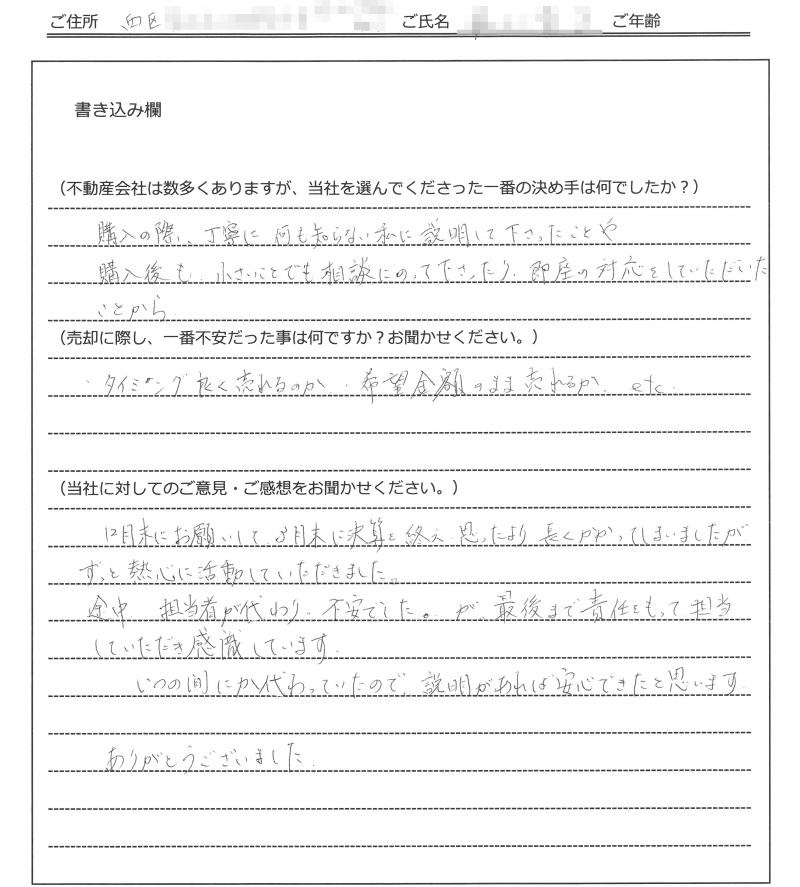 ご住所 西区 ご氏名 ご年齢
書き込み欄
（不動産会社は数多くありますが、当社を選んでくださった一番の決め手は何でしたか？）
購入の際、丁寧に何も知らない私に説明して下さったことや
購入後も、小さいことでも相談にのって下さったり、即座の対応をしていただいた
ことから
（売却に際し、一番不安だった事は何ですか？お聞かせください。）
・タイミング良く売れるのか、・希望金額のまま売れるか、etc.
（当社に対してのご意見・ご感想をお聞かせください。）
12月末にお願いして、8月末に決算を終え、思ったより長くかかってしまいましたが
ずっと熱心に活動していただきました。
途中、担当者が代わり、不安でした。が、最後まで責任をもって担当
していただき感識しています。
いつの間にか代わっていたので、説明があれば安心できたと思います。
ありがとうございました.